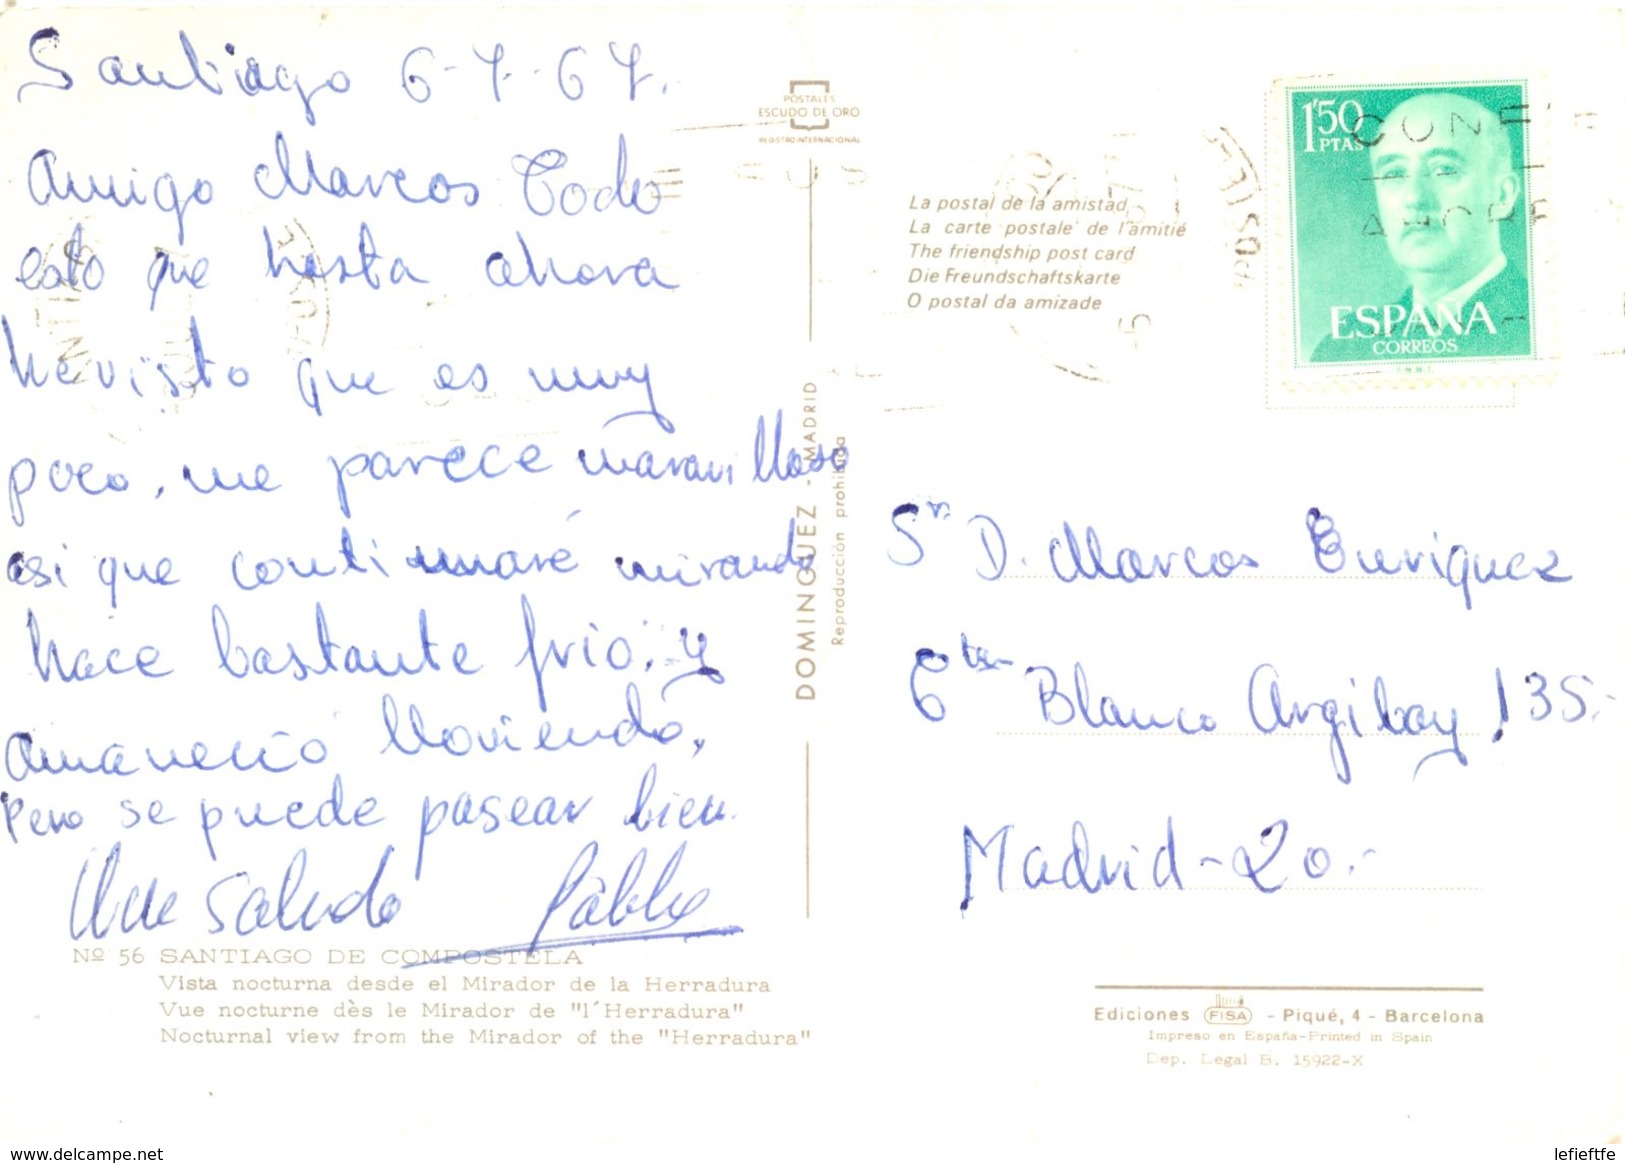 Santiago 6-7-67.
Amigo Marcos Todo
esto que hasta ahora
he visto que es muy
poco, me parece maravilloso
asi que continuaré mirando
hace bastante frio, y
amaneció lloviendo,
Pero se puede pasear bien.
Un Saludo Pablo
Nº 56 SANTIAGO DE COMPOSTELA
Vista nocturna desde el Mirador de la Herradura
Vue nocturne dès le Mirador de "l'Herradura"
Nocturnal view from the Mirador of the "Herradura"
POSTALES
ESCUDO DE ORO
REGISTRO INTERNACIONAL
DOMINGUEZ - MADRID
Reproducción prohibida
La postal de la amistad
La carte postale de l'amitié
The friendship post card
Die Freundschaftskarte
O postal da amizade
1'50
PTAS
ESPAÑA
CORREOS
F.N.M.T.
Sr. D. Marcos Enriquez
Blanco Argibay 135.-
Madrid-20.-
Ediciones FISA - Piqué, 4 - Barcelona
Impreso en España-Printed in Spain
Dep. Legal B. 15922-X
www.delcampe.net
lefieftfe